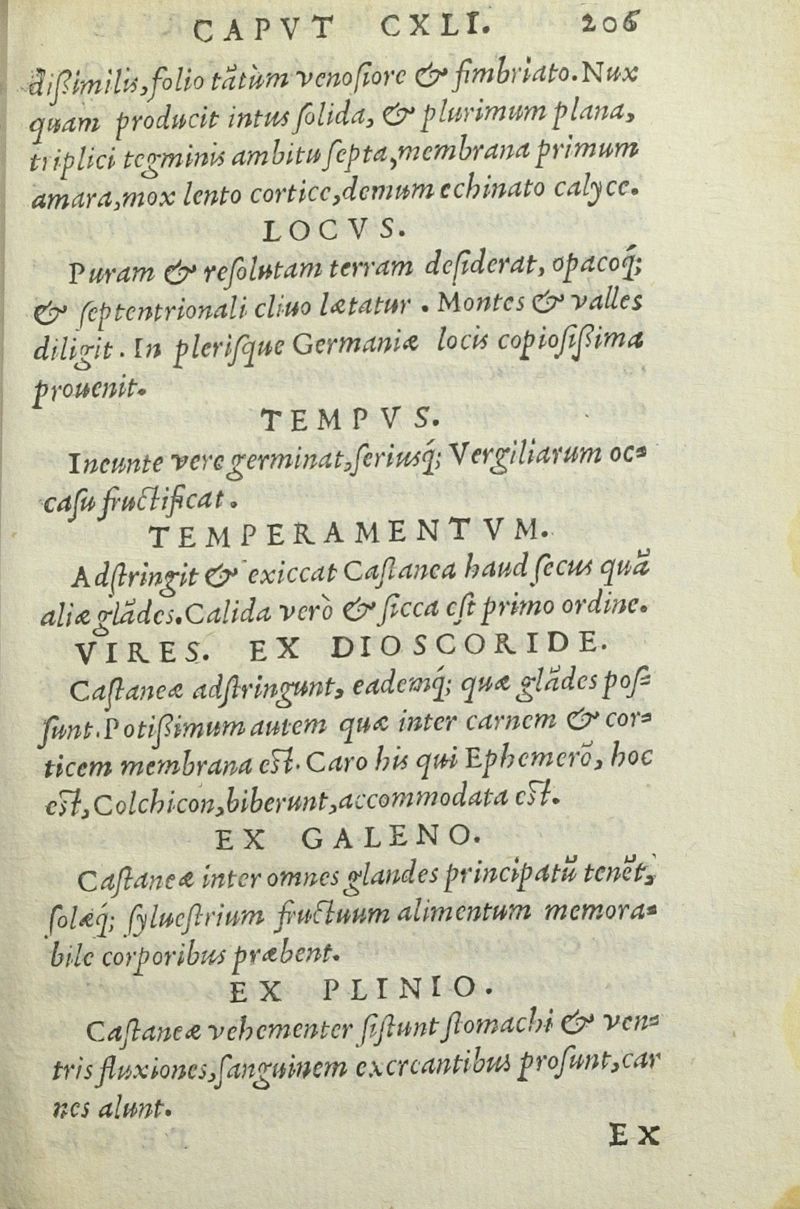 CAPVT CXLI. 206
dißimilis,folio tãtùm venoſiore & fimbriato.Nux
quam producit intus ſolida, & plurimum plana,
triplici tegminis ambitu ſepta,membrana primum
amara,mox lento cortice,demum echinato calyce.
LOCVS.
Puram & reſolutam terram deſiderat, opacoq́;
& ſeptentrionali cliuo lætatur . Montes & valles
diligit . In pleriſque Germaniæ locis copioſißima
prouenit.
TEMPVS.
Ineunte vere germinat,ſeriusq́; Vergiliarum oc-
caſu fructificat .
TEMPERAMENTVM.
Adſtringit & exiccat Caſtanea haud ſecus quã
aliæ glãdes.Calida verò & ſicca eſt primo ordine.
VIRES. EX DIOSCORIDE.
Caſtaneæ adſtringunt, eademq́; quæ glãdes poſ-
ſunt.Potißimum autem quæ inter carnem & cor-
ticem membrana eſt. Caro his qui Ephemerõ, hoc
eſt, Colchicon,biberunt,accommodata eſt.
EX GALENO.
Caſtaneæ inter omnes glandes principatũ tenẽt,
ſolæq́; ſylueſtrium fructuum alimentum memora-
bile corporibus præbent.
EX PLINIO.
Caſtaneæ vehementer ſiſtunt ſtomachi & ven-
tris fluxiones,ſanguinem excreantibus proſunt,car
nes alunt.
EX